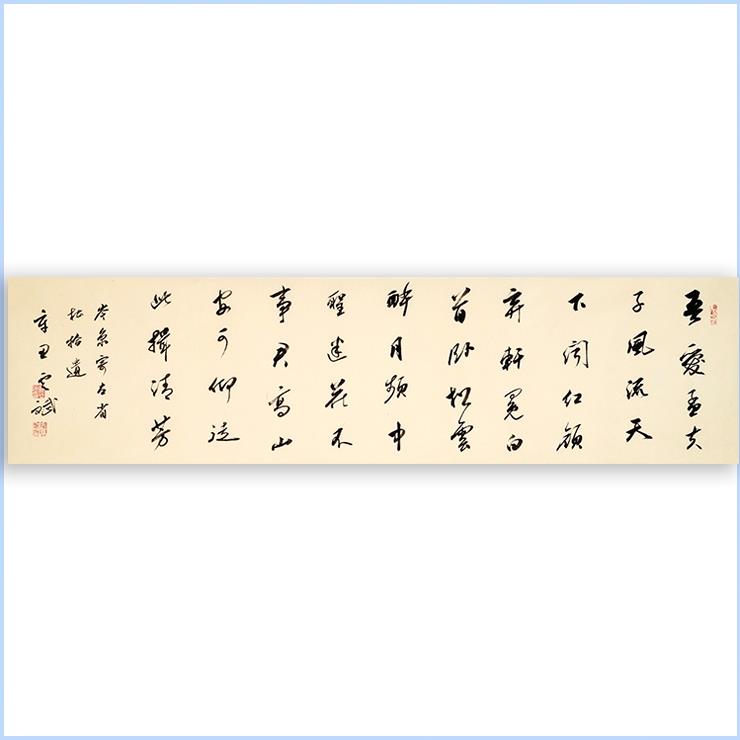 吾愛孟夫
子風流天
下聞紅顔
弃軒冕白
首卧松雲
醉月頻中
聖迷花不
事君高山
安可仰徒
此揖清芬
岑參寄左省
杜拾遺
辛丑定斌